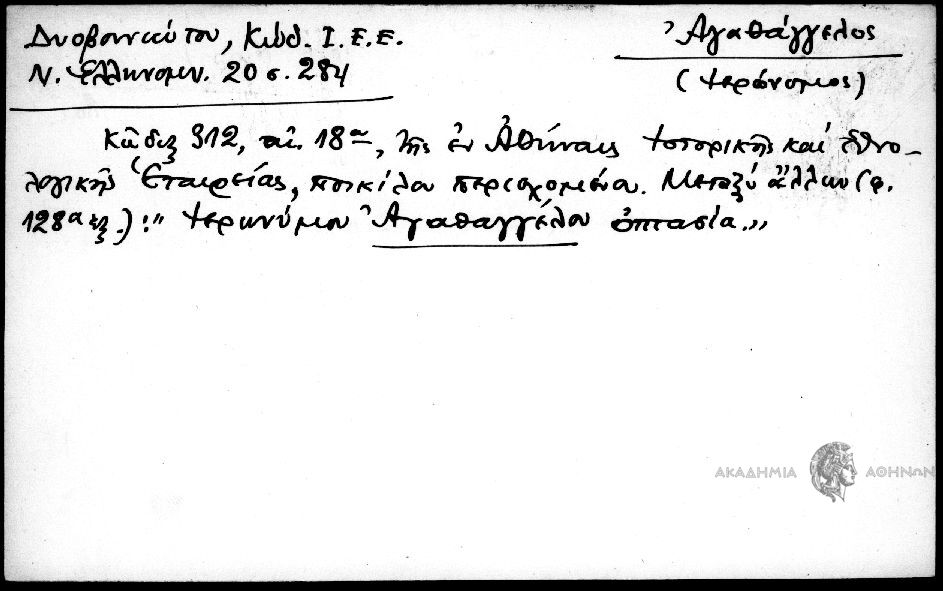 Δυοβουνιώτου, Κώδ. Ι. Ε. Ε.
Ν. Ἑλληνομν. 20 σ. 284
Ἀγαθάγγελος
(Ἱερώνυμος)
Κῶδιξ 312, αἰ. 18ου, τῆς ἐν Ἀθήναις Ἱστορικῆς καὶ Ἐθνο-
λογικῆς Ἑταιρείας, ποικίλου περιεχομένου. Μεταξὺ ἄλλων (φ.
128α ἑξ.): "Ἱερωνύμου Ἀγαθαγγέλου ὀπτασία."
ΑΚΑΔΗΜΙΑ ΑΘΗΝΩΝ